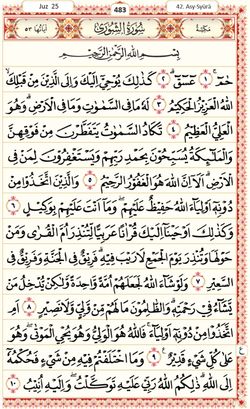 Juz 25
483
42. Asy-Syūrā
مَكِّيَّةٌ ٤٢
سُوْرَةُ الشُّوْرٰى
اٰيَاتُهَا ٥٣
بِسْمِ اللّٰهِ الرَّحْمٰنِ الرَّحِيْمِ
حٰمۤ ۚ ١ عۤسۤقۤ ۗ ٢ كَذٰلِكَ يُوْحِيْٓ اِلَيْكَ وَاِلَى الَّذِيْنَ مِنْ قَبْلِكَۙ
اللّٰهُ الْعَزِيْزُ الْحَكِيْمُ ٣ لَهٗ مَا فِى السَّمٰوٰتِ وَمَا فِى الْاَرْضِۗ وَهُوَ
الْعَلِيُّ الْعَظِيْمُ ٤ تَكَادُ السَّمٰوٰتُ يَتَفَطَّرْنَ مِنْ فَوْقِهِنَّ
وَالْمَلٰۤىِٕكَةُ يُسَبِّحُوْنَ بِحَمْدِ رَبِّهِمْ وَيَسْتَغْفِرُوْنَ لِمَنْ فِى
الْاَرْضِۗ اَلَآ اِنَّ اللّٰهَ هُوَ الْغَفُوْرُ الرَّحِيْمُ ٥ وَالَّذِيْنَ اتَّخَذُوْا مِنْ
دُوْنِهٖٓ اَوْلِيَاۤءَ اللّٰهُ حَفِيْظٌ عَلَيْهِمْۖ وَمَآ اَنْتَ عَلَيْهِمْ بِوَكِيْلٍ ٦
وَكَذٰلِكَ اَوْحَيْنَآ اِلَيْكَ قُرْاٰنًا عَرَبِيًّا لِّتُنْذِرَ اُمَّ الْقُرٰى وَمَنْ
حَوْلَهَا وَتُنْذِرَ يَوْمَ الْجَمْعِ لَا رَيْبَ فِيْهِۗ فَرِيْقٌ فِى الْجَنَّةِ وَفَرِيْقٌ فِى
السَّعِيْرِ ٧ وَلَوْ شَاۤءَ اللّٰهُ لَجَعَلَهُمْ اُمَّةً وَّاحِدَةً وَّلٰكِنْ يُّدْخِلُ مَنْ
يَّشَاۤءُ فِيْ رَحْمَتِهٖۗ وَالظّٰلِمُوْنَ مَا لَهُمْ مِّنْ وَّلِيٍّ وَّلَا نَصِيْرٍ ٨ اَمِ
اتَّخَذُوْا مِنْ دُوْنِهٖٓ اَوْلِيَاۤءَۚ فَاللّٰهُ هُوَ الْوَلِيُّ وَهُوَ يُحْيِ الْمَوْتٰىۖ وَهُوَ
عَلٰى كُلِّ شَيْءٍ قَدِيْرٌ ٩ وَمَا اخْتَلَفْتُمْ فِيْهِ مِنْ شَيْءٍ فَحُكْمُهٗٓ
اِلَى اللّٰهِۗ ذٰلِكُمُ اللّٰهُ رَبِّيْ عَلَيْهِ تَوَكَّلْتُۖ وَاِلَيْهِ اُنِيْبُ ١٠